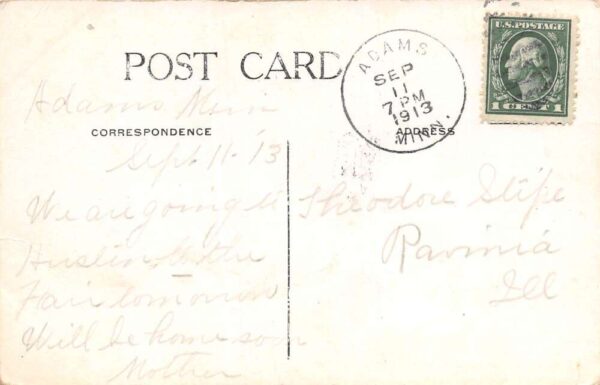 POST CARD
ADAMS
SEP
11
7 PM
1913
MINN.
U.S. POSTAGE
1 CENT 1
CORRESPONDENCE
ADDRESS
Adams Minn
Sept 11-13
We are going to
to the
Fair tomorrow
Will be home soon
Mother
Theodore Slife
Ravinia
Ill